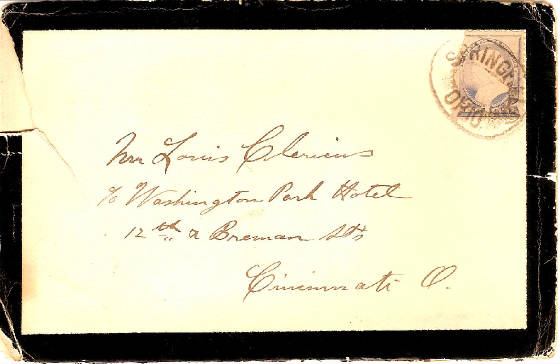 SPRINGFIELD
OHIO
Mr Louis Clericus
℅ Washington Park Hotel
12th & Bremen Sts
Cincinnati O.